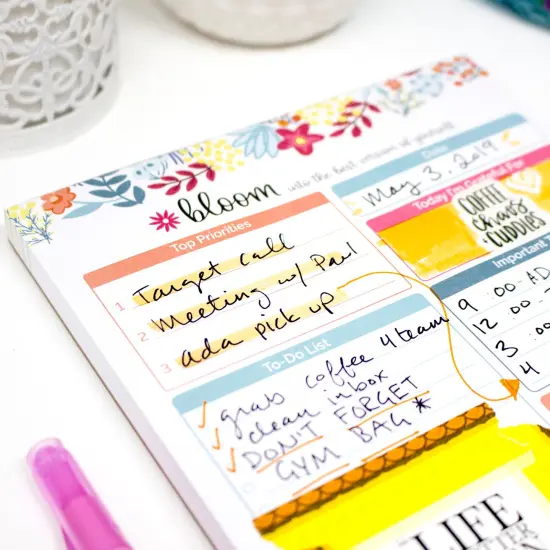 bloom into the best version of yourself
Date
May 3, 2019
Top Priorities
1 Target call
2 Meeting w/ Paul
3 ada pick up
Today I'm Grateful For
COFFEE
chaos
+ CUDDLES
Important
9:00-AD
12:00-
3:00
4
To-Do List
✓ grab coffee 4 team
✓ clean inbox
✓ DON'T FORGET
GYM BAG *
LIFE